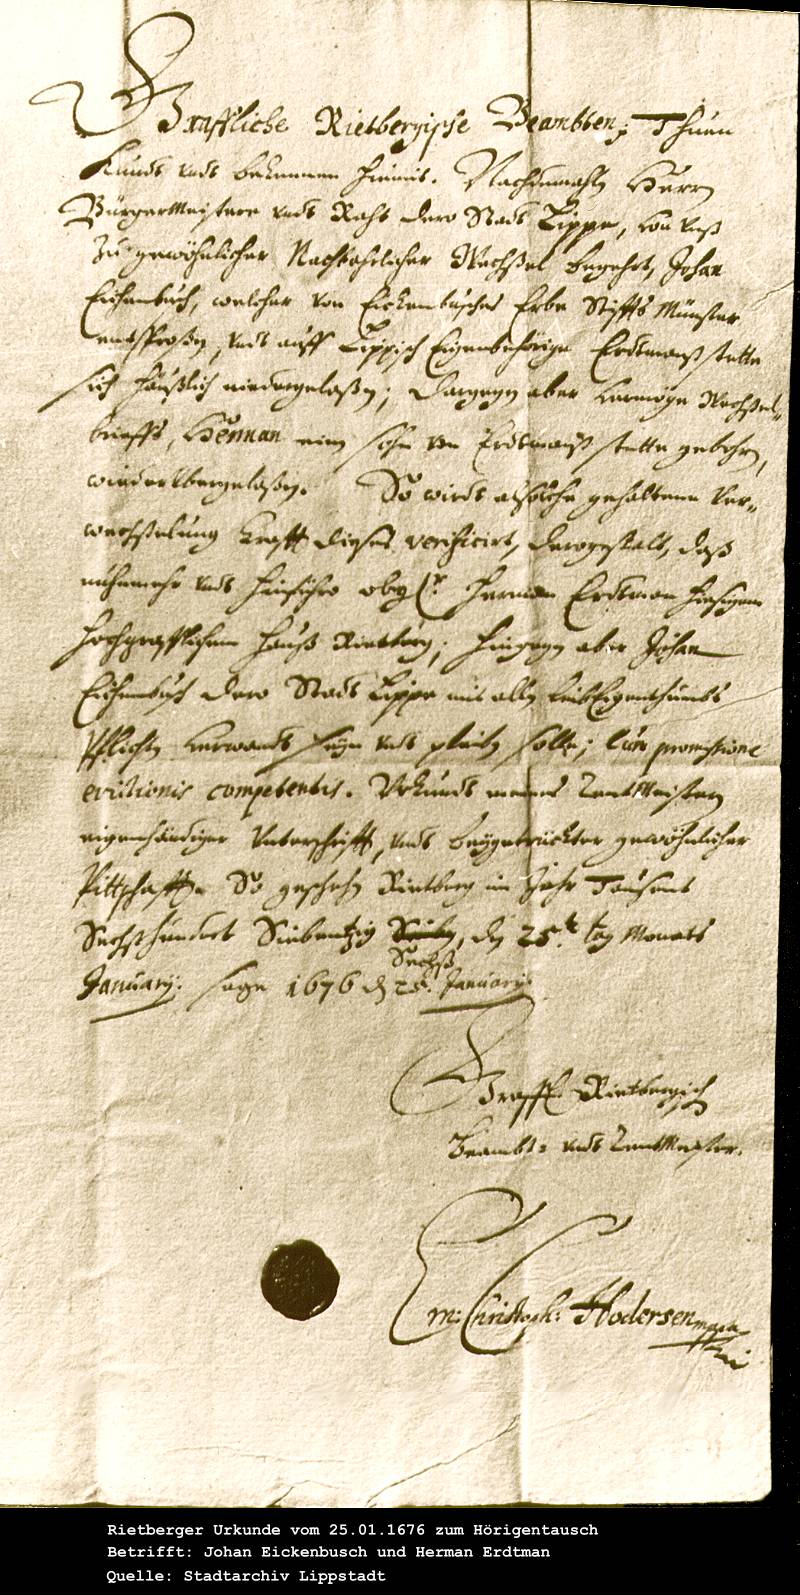 Graffliche Rietbergische Beambten; Thuen
Kundt undt bekennen hiemit. Nachdemahln Herrn
Bürgermeistere undt Raht dero Stadt Lippe, von unß
zu gewöhnlicher Nachbahrlicher Wechßel begehrt, Johan
Eickenbusch, welcher von Eickenbusches Erbe Stiffts Münster
entsproßen, undt auff Lippisch Eigenbehörige Erdtmanß stette
sich häußlich niedergelaßen; dargegen aber vermöge Wechßel-
brieffs, Herman einen sohn von Erdtmanß stette gebohren,
wiederübergelaßen. So wirdt alsolche gehaltene Ver-
wechßelung krafft dieses verificirt, dergestalt, daß
nuhnmehr undt hinführo obg. Herman Erdtman hiesigem
Hochgrafflichem Hauß Rietberg; hingegen aber Johan
Eickenbusch dero Stadt Lippe mit allen LeibEigenthumbs
Pflichten verwandt seyn undt pleiben solle; Cum promissione
evictionis competentis. Uhrkundt meines Rentmeisters
eigenhändiger Unterschrifft, undt beygetrückter gewöhnlicher
Pittschafft. So geschehen Rietberg im Jahr Tausent
Sechßhundert Siebentzig Sieben, den 25.t tag Monats
Sechß
January. sage 1676 den 25. January.
Gräffl. Rietbergisch
Beambt- undt Rentmeister.
Em: Christoph: Hodersen
Rietberger Urkunde vom 25.01.1676 zum Hörigentausch
Betrifft: Johan Eickenbusch und Herman Erdtman
Quelle: Stadtarchiv Lippstadt